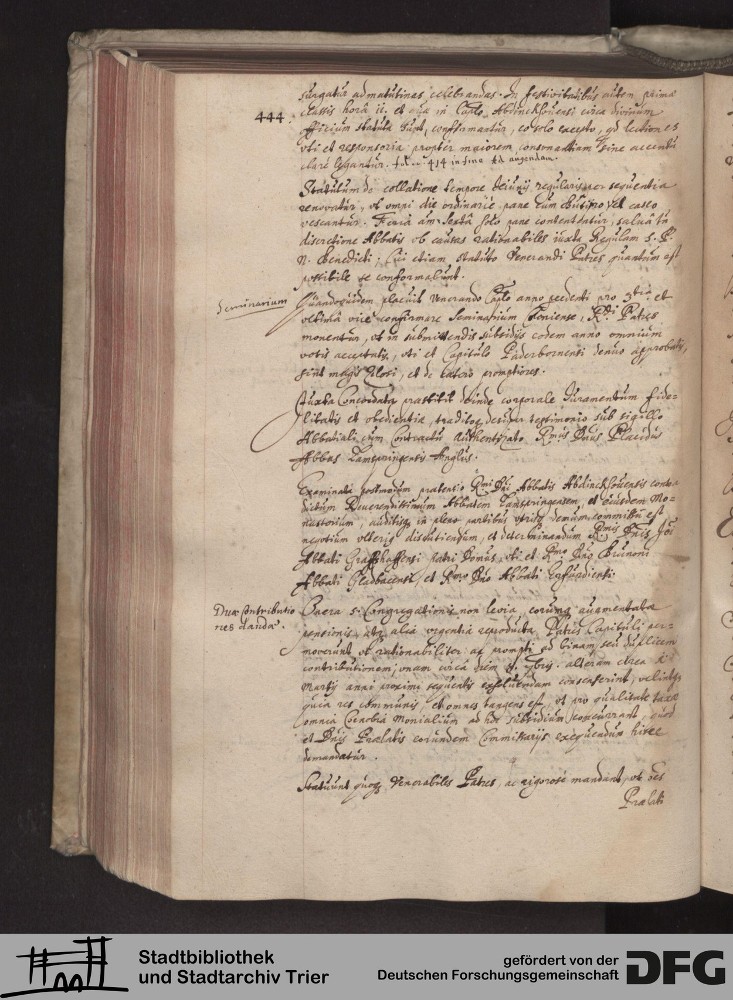 444.
surgatur ad matutinas celebrandas. In festivitatibus autem primae
classis horâ ii. et quae in Caplo Abdinckhovensi circa divinum
officium statuta sunt, confirmantur, eo solo excepto, qd lectiones
uti et responsoria propter maiorem consonantiam sine accentu
claré legantur. 414 in fine augendam.
Statutum de collatione tempore Ieiunij regularis sequentia
renovatur, ut omni die ordinarie pane cum Butiro vel caseo
vescantur. Feriâ autem sextâ solo pane contententur, salvâ tn
discretione Abbatis ob causas rationabiles iuxta Regulam S. P.
N. Benedicti; Cui etiam statuto Venerandi Patres quantum est
possibile se conformabunt.
Seminarium
Quandoquidem placuit Venerando Caplo anno sedenti pro 3tiâ et
ultimâ vice confirmare Seminarium Coloniense, Rdi Patres
monentur, ut in submittendis subsidijs eodem anno omnium
votis acceptatis, uti et Capitulo Paderbornensi denuo approbatis,
sint magis zelosi, et de caetero promptiores.
Iuxta Concordata praestitit deinde corporale Iuramentum fide-
litatis et obedientiae, traditoq desuper testimonio sub sigillo
Abbatiali cum Contractu authentizato Rmus Dnus Placidus
Abbas Lamspringensis Anglus.
Examinatâ postmodum praetensio Rmi Dni Abbatis Abdinckhovensis contra
dictum Reverendissimum Abbatem Lamspringensem, et eiusdem Mo-
nasterium, auditisq in pleno partibus utrisq demum commissu est
negotium ulterius discutiendum, et determinandum Rmis Dnis Joi
Abbati Graffschaffensi patri Domus, uti et Rmo Dno Brunoni
Abbati Gladbacensi, et Rmo Dno Abbati Erfurdiensi.
Duae Contributio
nes dandae.
Onera S. Congregationis non levia, eorumq augmentata
pensionis, atq alia urgentia reproducta Patres Capituli per-
moverunt ut rationabiliter ac prompti ad binam, seu duplicem
contributionem, unam circa diem 9bris. alteram circa
Martij anni proximi sequentis exsolvendam consenserint, velintq
quia res communis et omnes tangens est, ut pro qualitate taxae
omnia Coenobia Monialium ad hoc subsidium concurrant, quod
et Dnis Praelatis eorundem Commissarijs exequendum hisce
demandatur.
Statuunt quoq Venerabiles Patres, ac rigorosè mandant, ut oes
Praelati
Stadtbibliothek
und Stadtarchiv Trier
gefördert von der
Deutschen Forschungsgemeinschaft
DFG